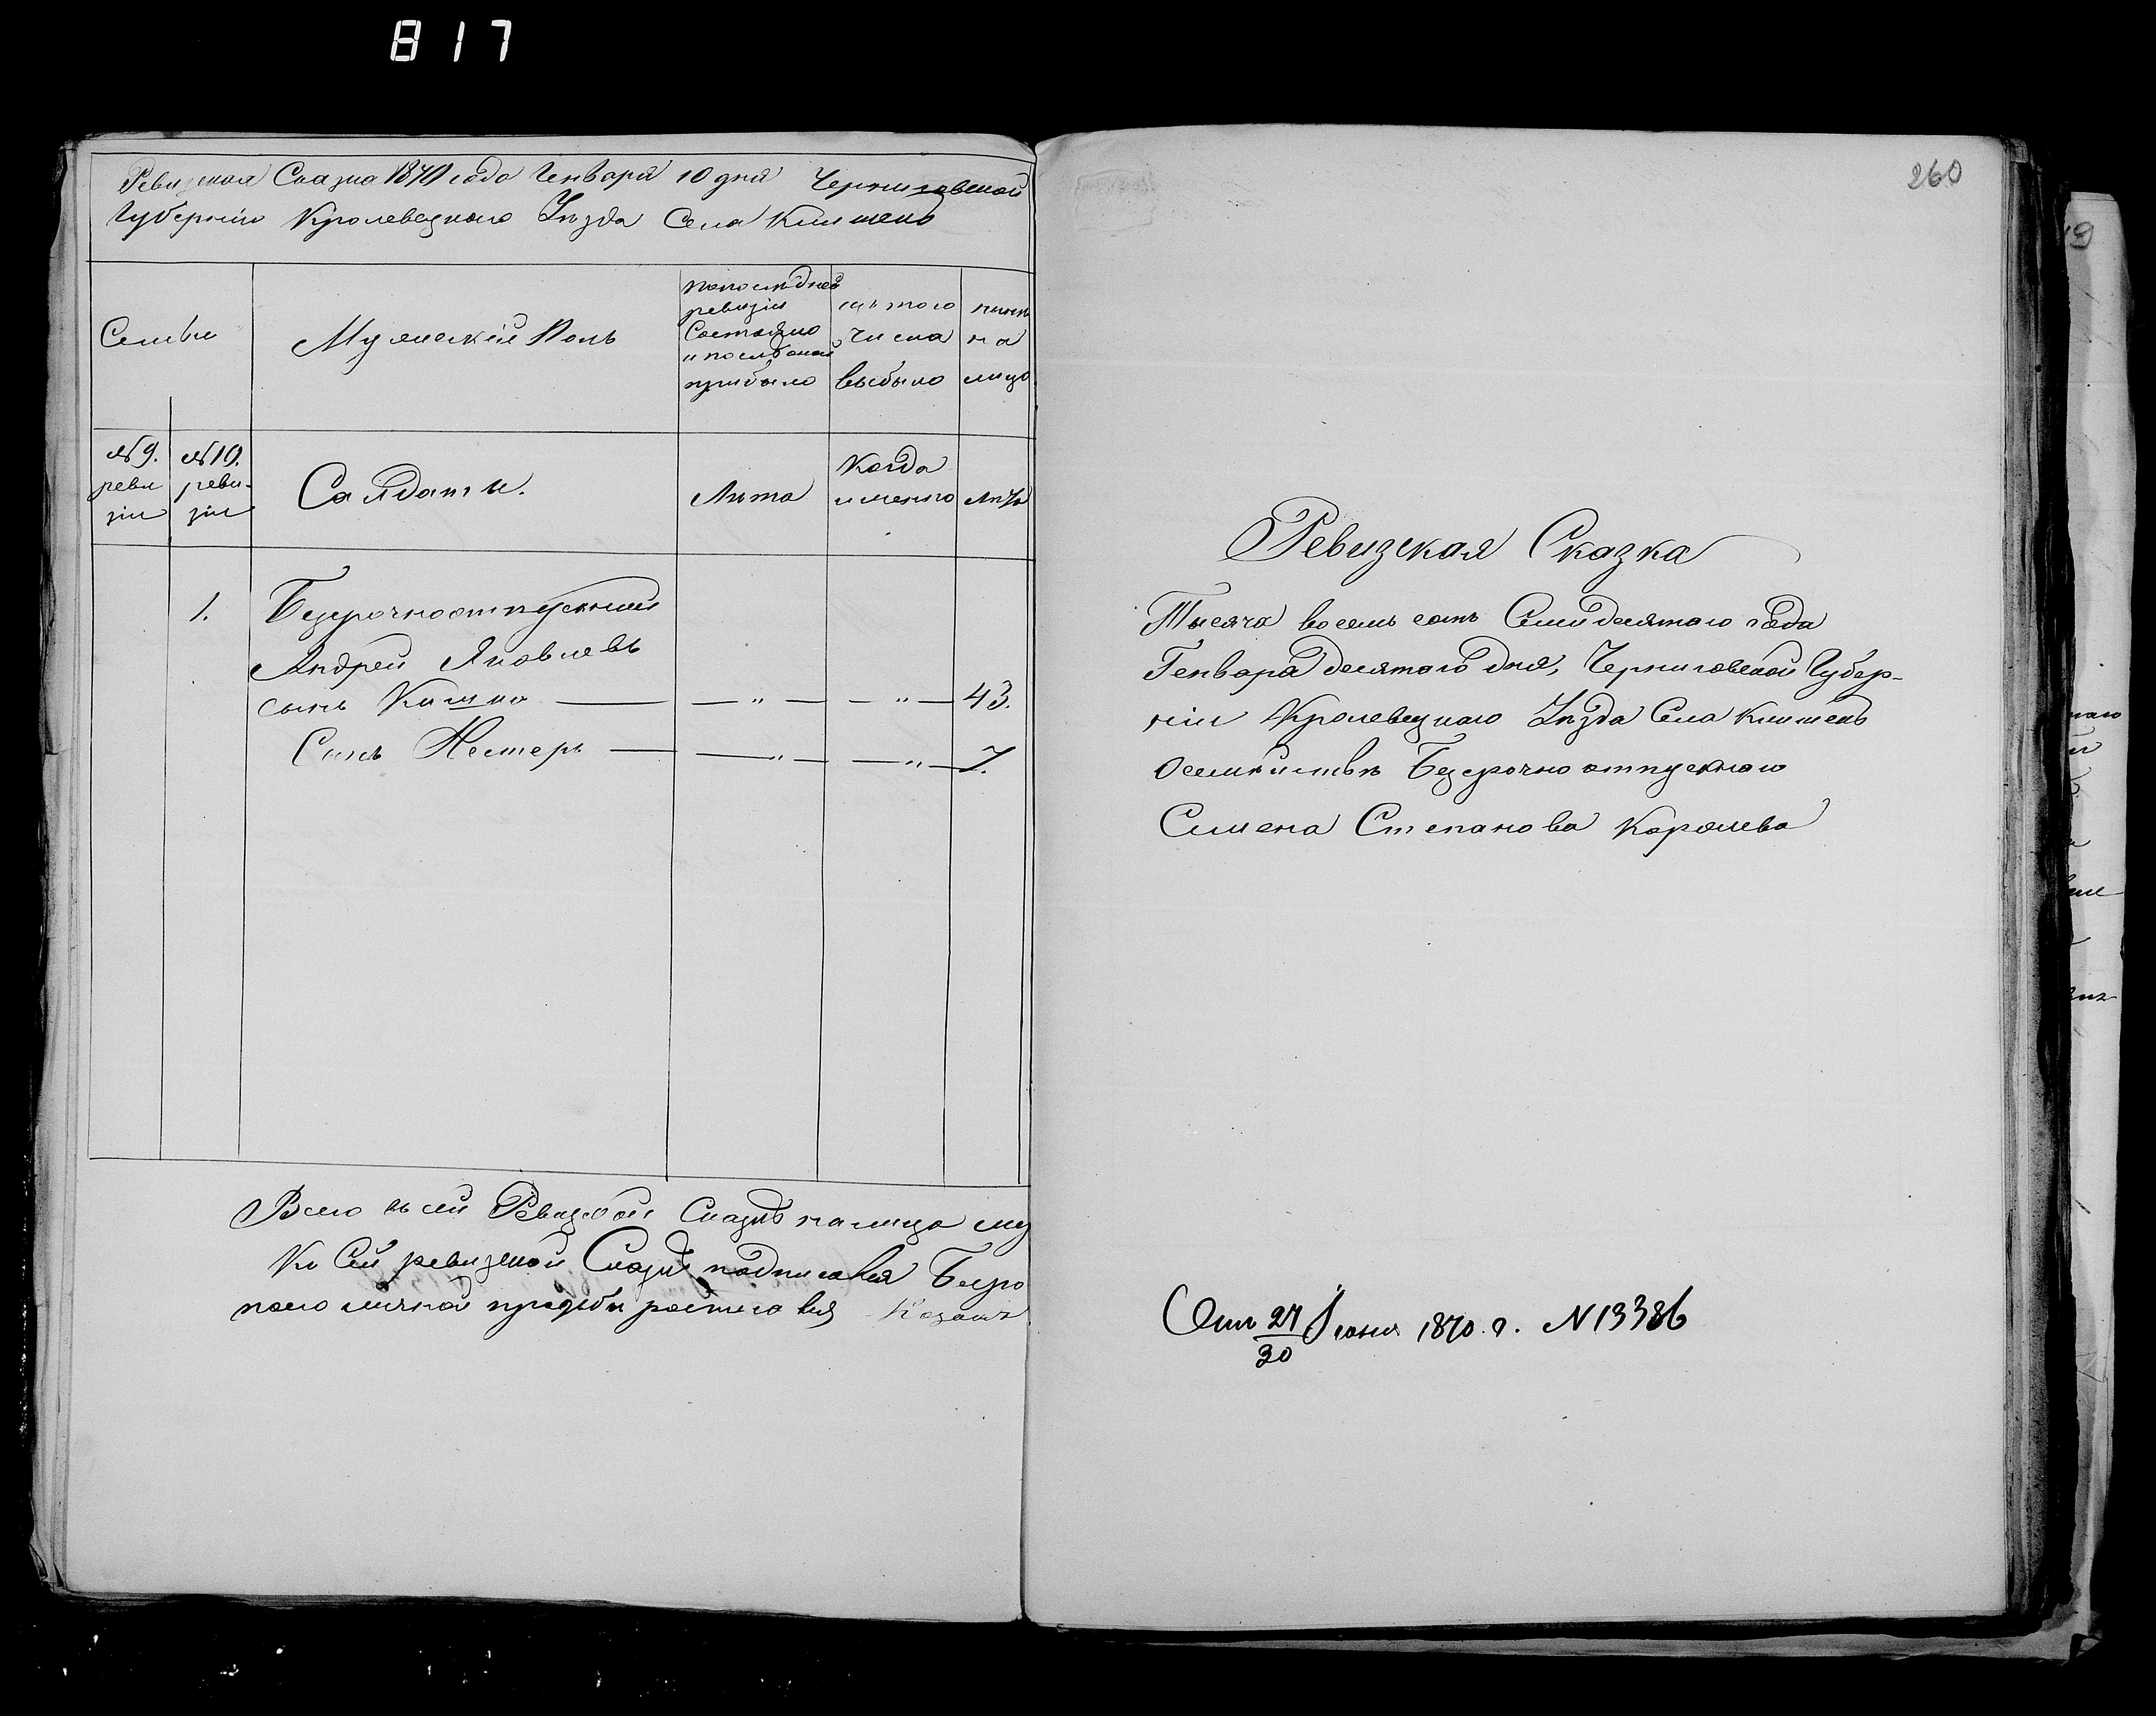 817
Ревизская Сказка 1870 года Генваря 10 дня Черниговской
Губерніи Кролевецкаго Уѣзда Села Клишекъ
Семьи
Мужескій Полъ
попослѣдней
ревизіи
Состояло
и послѣ оной
прибыло
изъ того
числа
выбыло
нынѣ
на
лицо
№ 9.
реви
зіи
№ 10.
реви-
зіи
Салдаты.
Лѣта
Когда
именно
Лѣта
1.
Безсрочноотпускный
Андрей Яковлевъ
сынъ Кишко — „ — — „ — 43.
Сынъ Нестеръ — — „ — — „ — 7.
Всего въ сей Ревизской Сказкѣ налицо му
Ко Сей ревизской Сказкѣ подписался Безсро
личной прозьбы росписався Козакъ
260
Ревизская Сказка
Тысяча восемь сотъ Семидесятого года
Генваря десятого дня, Черниговской Губер-
ніи Кролевецкаго Уѣзда Села Клишекъ
Осемѣйствѣ Безсрочно отпускнаго
Симена Степанова Королева
Отъ 27/30 Іюня 1870 г. N 13386